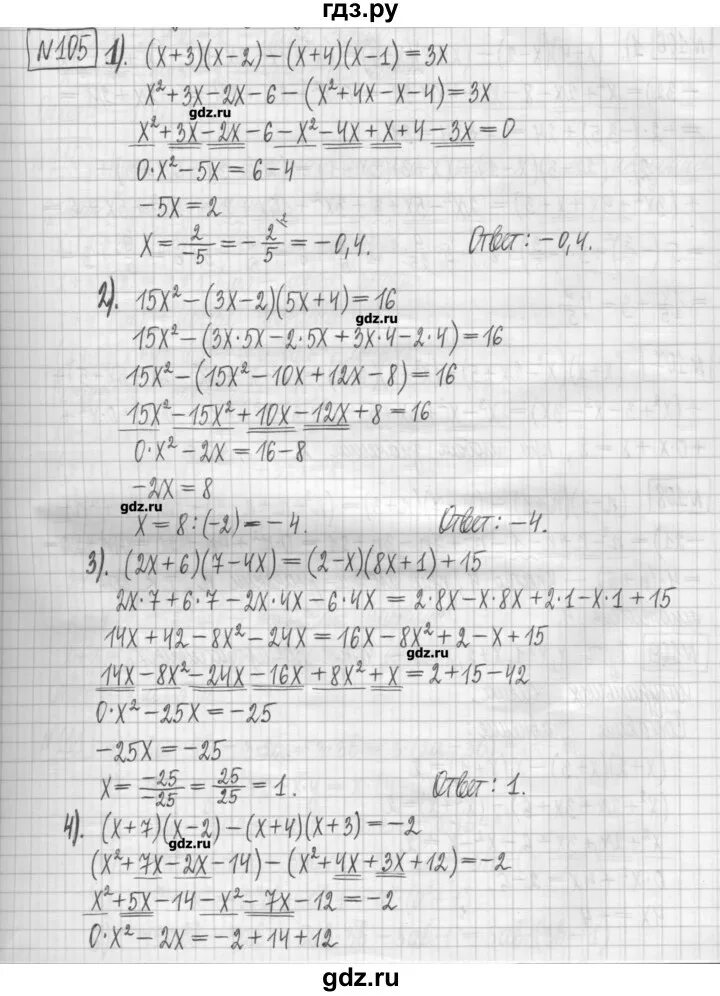 гдз.ру
№105 1). (x+3)(x-2)-(x+4)(x-1)=3x
x²+3x-2x-6-(x²+4x-x-4)=3x
gdz.ru
x²+3x-2x-6-x²-4x+x+4-3x=0
0·x²-5x=6-4
-5x=2
x=2/-5=-2/5=-0,4. Ответ: -0,4.
2). 15x²-(3x-2)(5x+4)=16
gdz.ru
15x²-(3x·5x-2·5x+3x·4-2·4)=16
15x²-(15x²-10x+12x-8)=16
15x²-15x²+10x-12x+8=16
0·x²-2x=16-8
-2x=8
gdz.ru
x=8:(-2)=-4. Ответ: -4.
3). (2x+6)(7-4x)=(2-x)(8x+1)+15
2x·7+6·7-2x·4x-6·4x=2·8x-x·8x+2·1-x·1+15
14x+42-8x²-24x=16x-8x²+2-x+15
gdz.ru
14x-8x²-24x-16x+8x²+x=2+15-42
0·x²-25x=-25
-25x=-25
x=-25/-25=25/25=1. Ответ: 1.
4). (x+7)(x-2)-(x+4)(x+3)=-2
gdz.ru
(x²+7x-2x-14)-(x²+4x+3x+12)=-2
x²+5x-14-x²-7x-12=-2
0·x²-2x=-2+14+12
gdz.ru